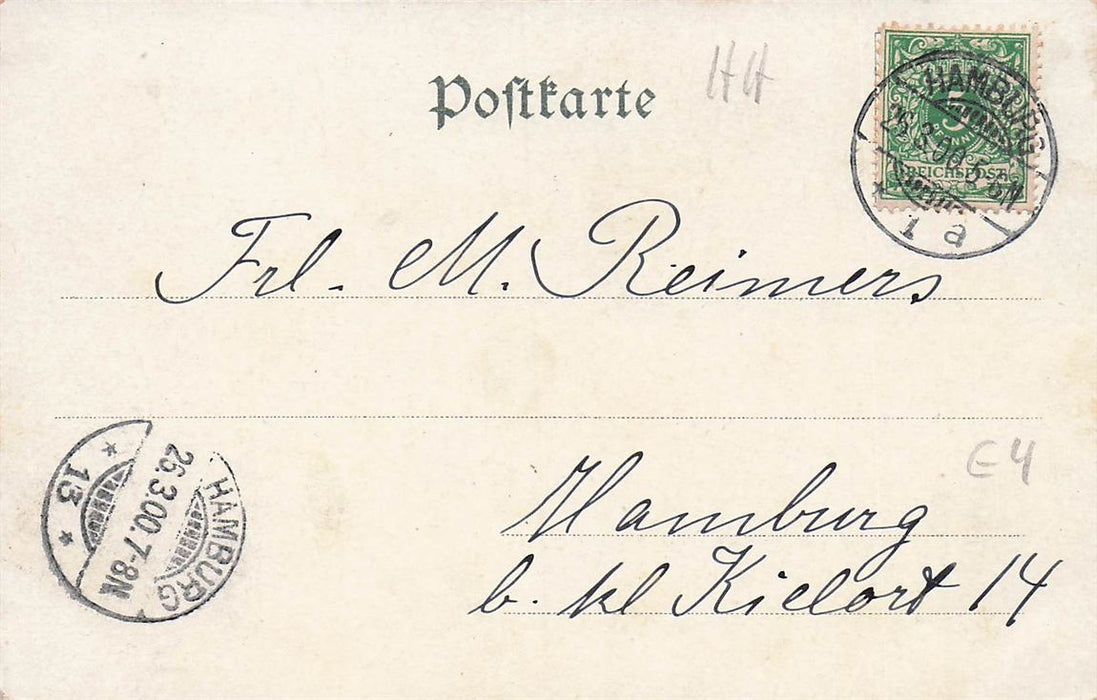 Postkarte
HH
5
REICHSPOST
HAMBURG
3.00.5-6N
1 a
Frl. M. Reimers
E4
HAMBURG
26.3.00.7-8N
* 13 *
Hamburg
b. kl Kielort 14